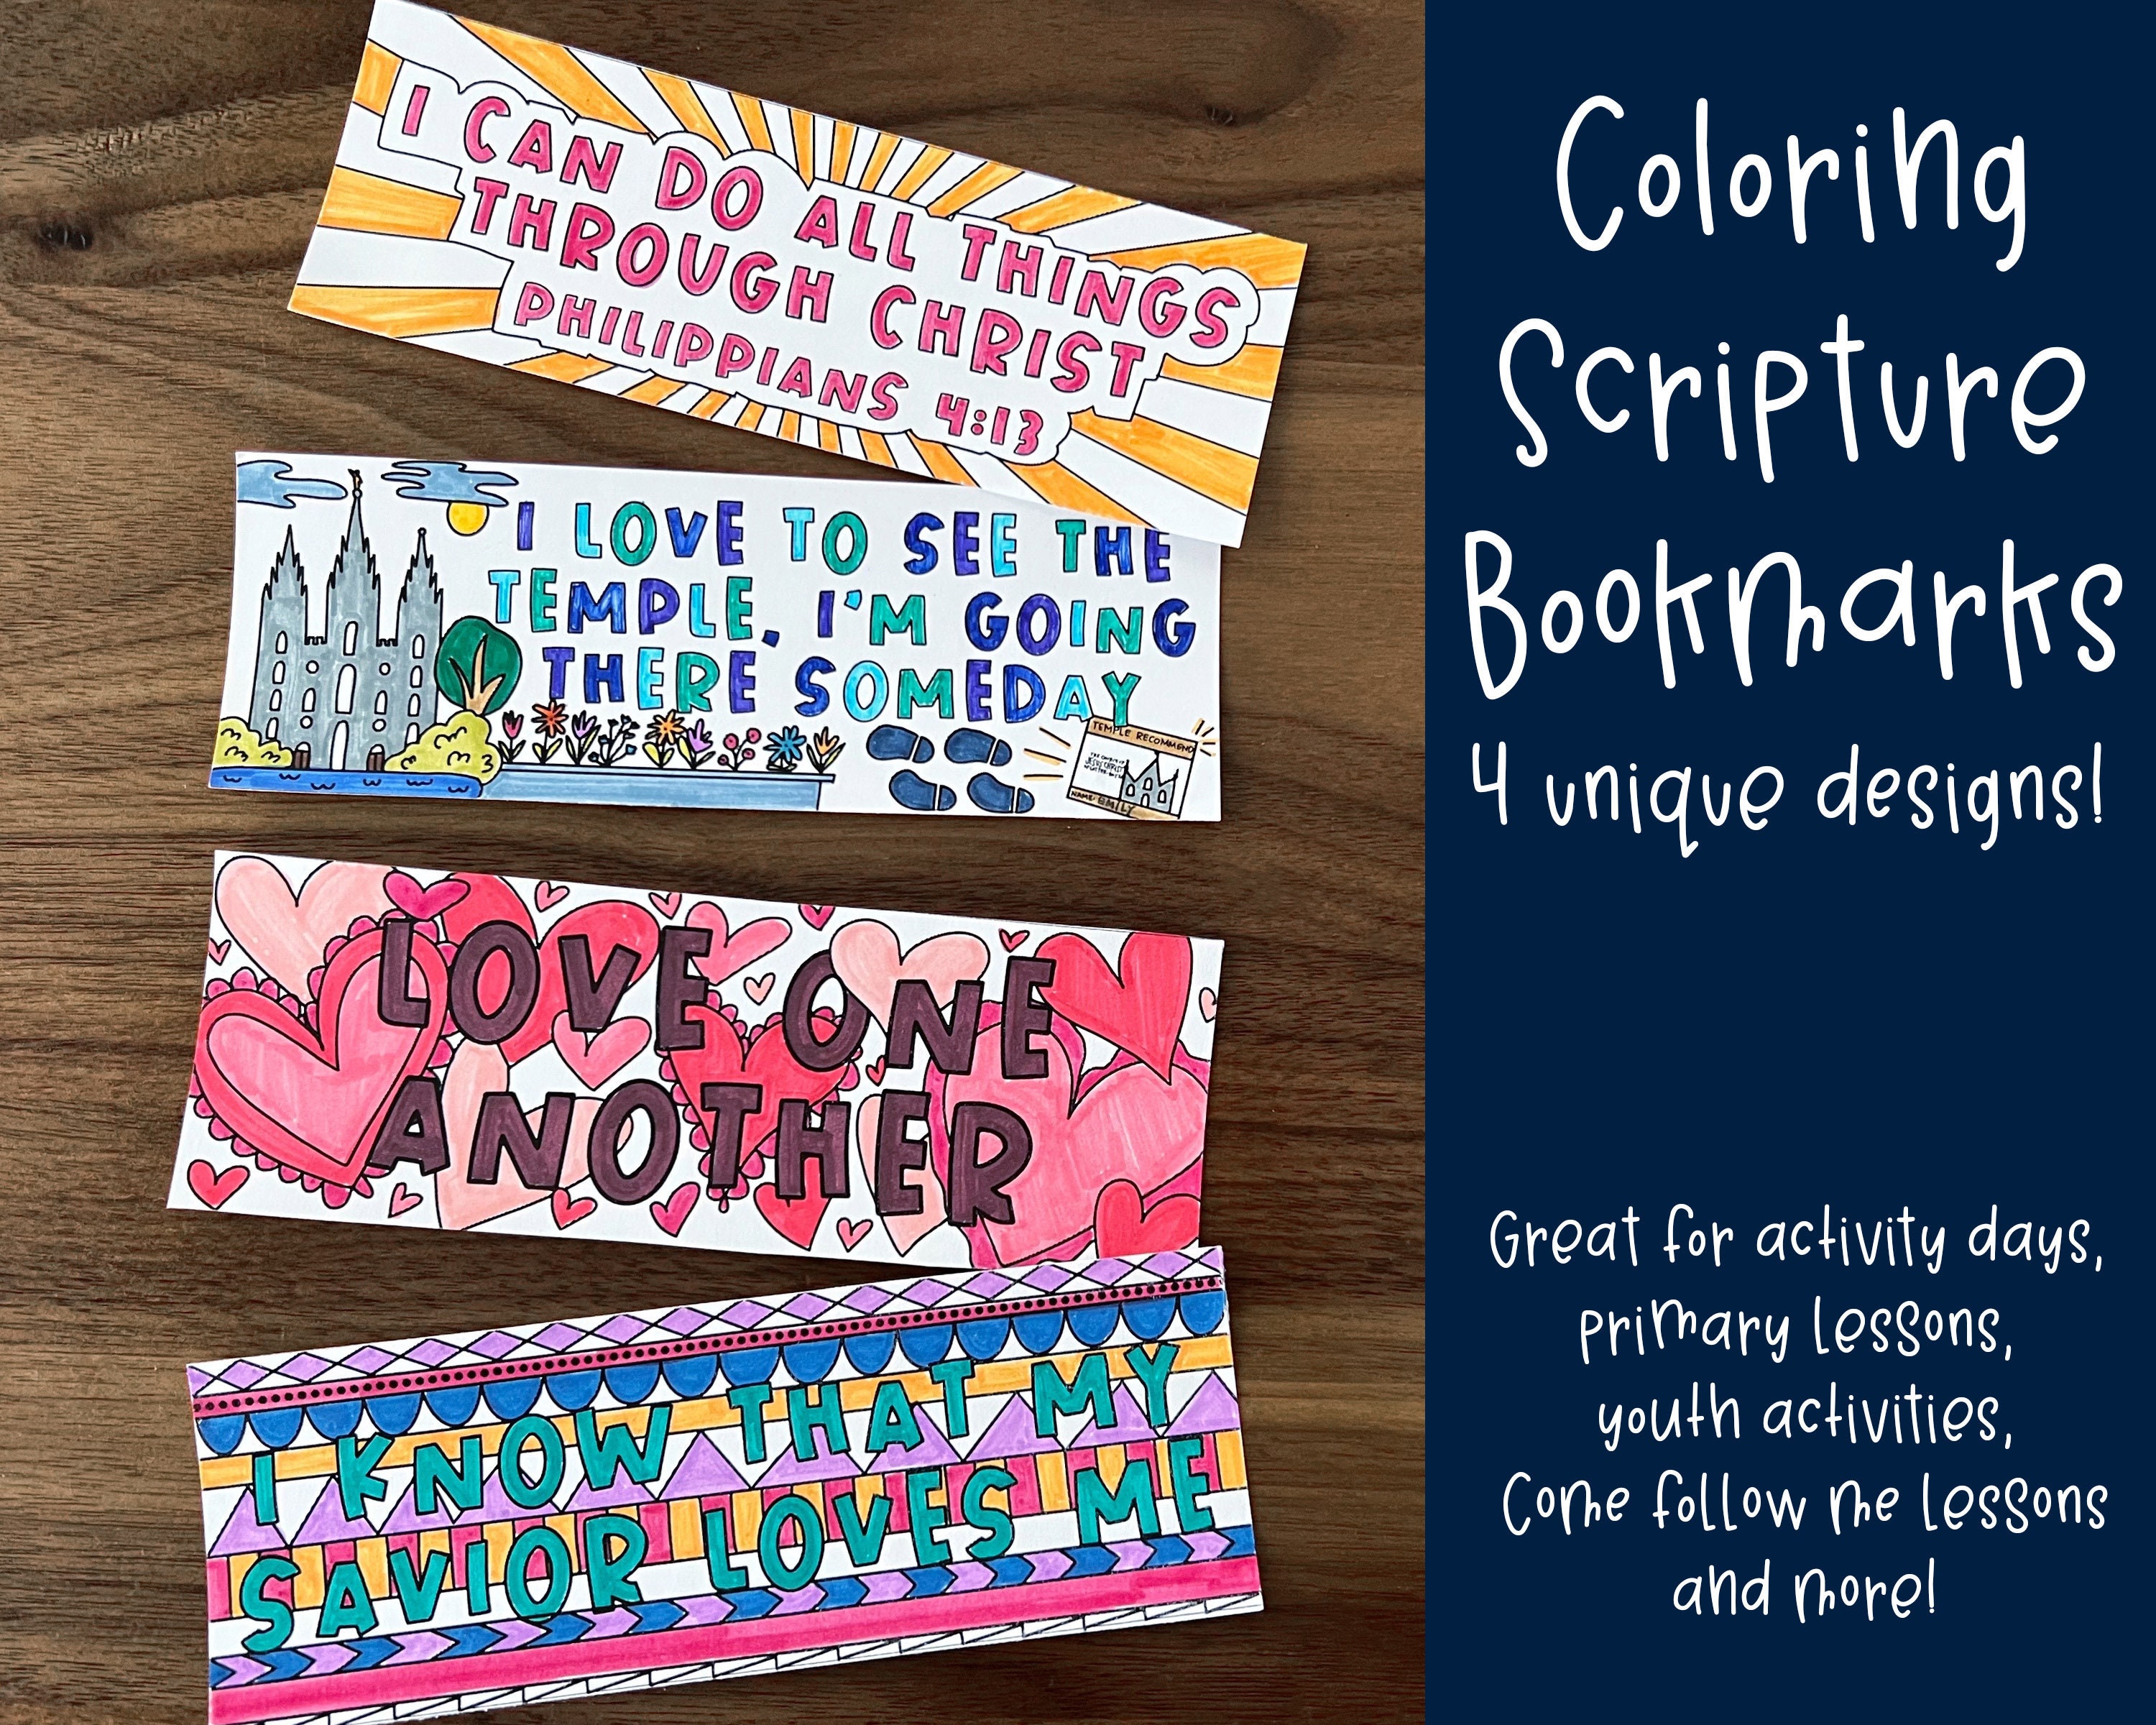 I CAN DO ALL THINGS
THROUGH CHRIST
PHILIPPIANS 4:13
I LOVE TO SEE THE
TEMPLE, I'M GOING
THERE SOMEDAY
TEMPLE RECOMMEND
JESUS CHRIST
NAME: EMILY
LOVE ONE
ANOTHER
I KNOW THAT MY
SAVIOR LOVES ME
Coloring
Scripture
Bookmarks
4 unique designs!
Great for activity days,
primary lessons,
youth activities,
Come follow me lessons
and more!